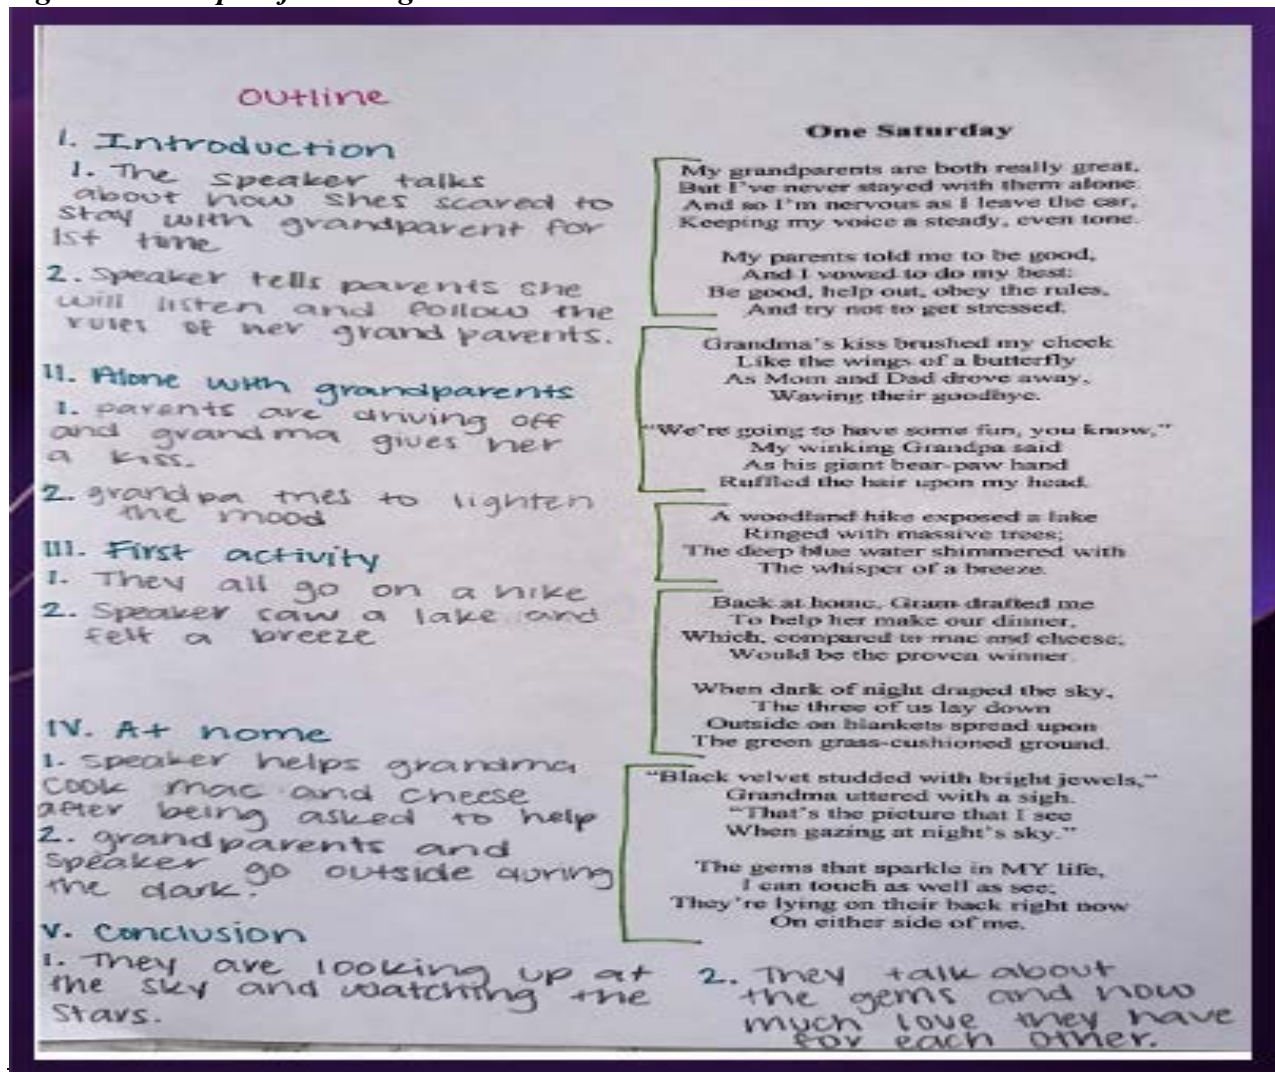 outline
I. Introduction
1. The speaker talks
about how shes scared to
stay with grandparent for
1st time
2. Speaker tells parents she
will listen and follow the
rules of her grand parents.
II. Alone with grandparents
1. parents are driving off
and grandma gives her
a kiss.
2. grandpa tries to lighten
the mood
III. First activity
1. They all go on a hike
2. Speaker saw a lake and
felt a breeze
IV. At home
1. Speaker helps grandma
cook mac and cheese
after being asked to help
2. grandparents and
speaker go outside during
the dark.
V. Conclusion
1. They are looking up at
the sky and watching the
stars.
2. They talk about
the gems and how
much love they have
for each other.
One Saturday
My grandparents are both really great,
But I've never stayed with them alone.
And so I'm nervous as I leave the car,
Keeping my voice a steady, even tone.
My parents told me to be good,
And I vowed to do my best:
Be good, help out, obey the rules,
And try not to get stressed.
Grandma's kiss brushed my cheek
Like the wings of a butterfly
As Mom and Dad drove away,
Waving their goodbye.
"We're going to have some fun, you know,"
My winking Grandpa said
As his giant bear-paw hand
Ruffled the hair upon my head.
A woodland hike exposed a lake
Ringed with massive trees;
The deep blue water shimmered with
The whisper of a breeze.
Back at home, Gram drafted me
To help her make our dinner,
Which, compared to mac and cheese,
Would be the proven winner.
When dark of night draped the sky,
The three of us lay down
Outside on blankets spread upon
The green grass-cushioned ground.
"Black velvet studded with bright jewels,"
Grandma uttered with a sigh.
"That's the picture that I see
When gazing at night's sky."
The gems that sparkle in MY life,
I can touch as well as see;
They're lying on their back right now
On either side of me.